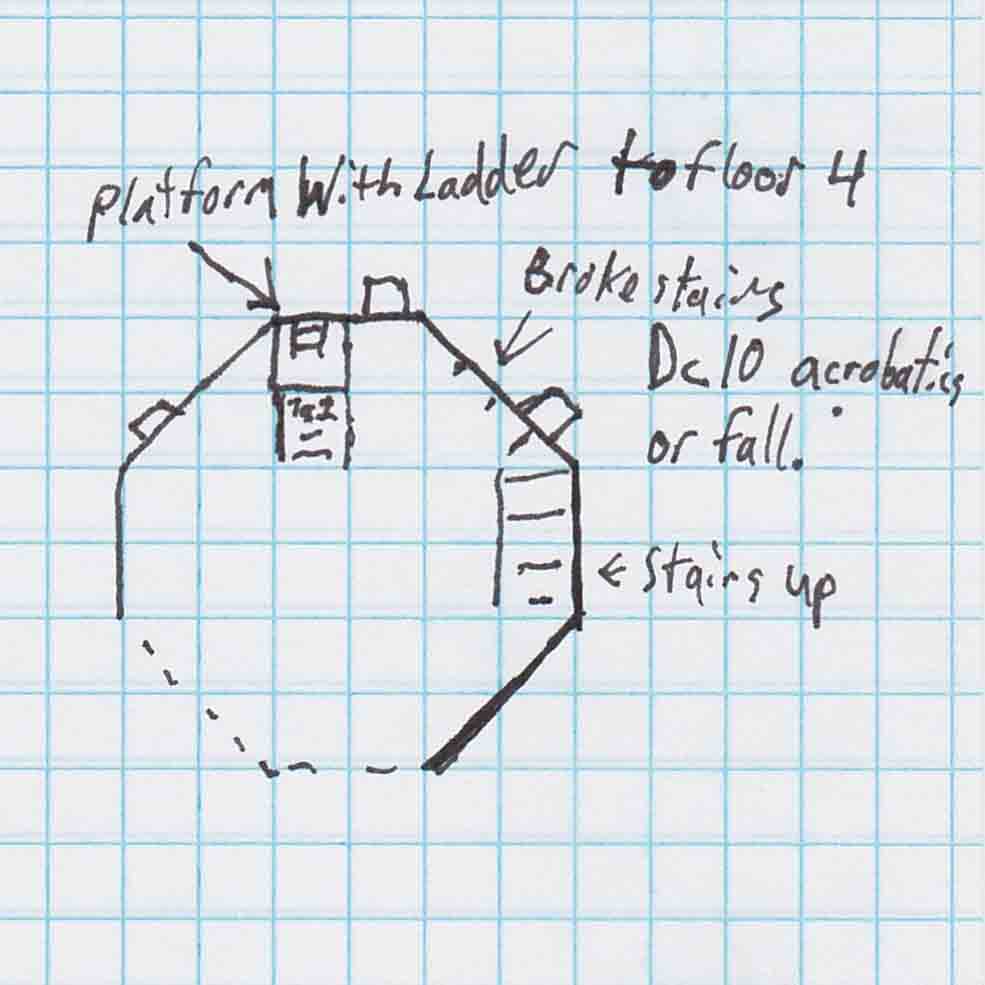 Platform With Ladder to floor 4
Broke stairs
Dc 10 acrobatics
or fall.
stairs up